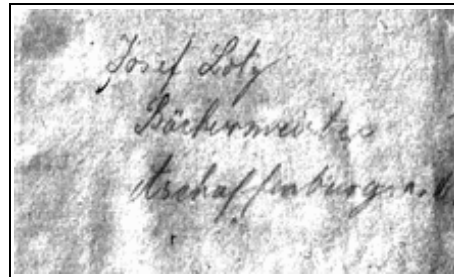 Josef Lotz
Bäckermeister
Aschaffenburg a. M.